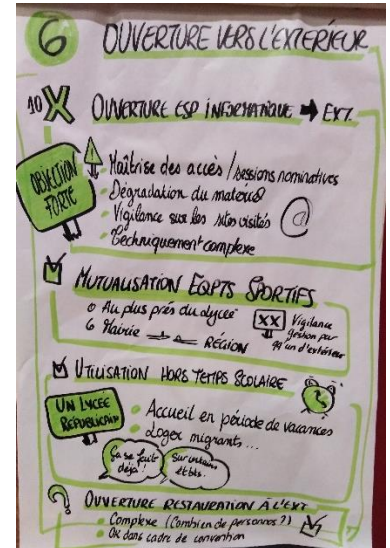 6 OUVERTURE VERS L'EXTERIEUR
10 X OUVERTURE ESP INFORMATIQUE → EXT.
OBJECTION FORTE
Maîtrise des accès / sessions nominatives
• Dégradation du matériel
• Vigilance sur les sites visités @
• Techniquement complexe
MUTUALISATION EQPTS SPORTIFS
0 Au plus près du lycée
6 Mairie RÉGION
XX Vigilance
gestion par
qq'un d'extérieur
UTILISATION HORS TEMPS SCOLAIRE
UN LYCEE
REPUBLICAIN
• Accueil en période de vacances
• Loger migrants...
Ça se fait
déjà !
Sur certains
étbts.
? OUVERTURE RESTAURATION À L'EXT
• Complexe (Combien de personnes ?)
• OK dans cadre de convention